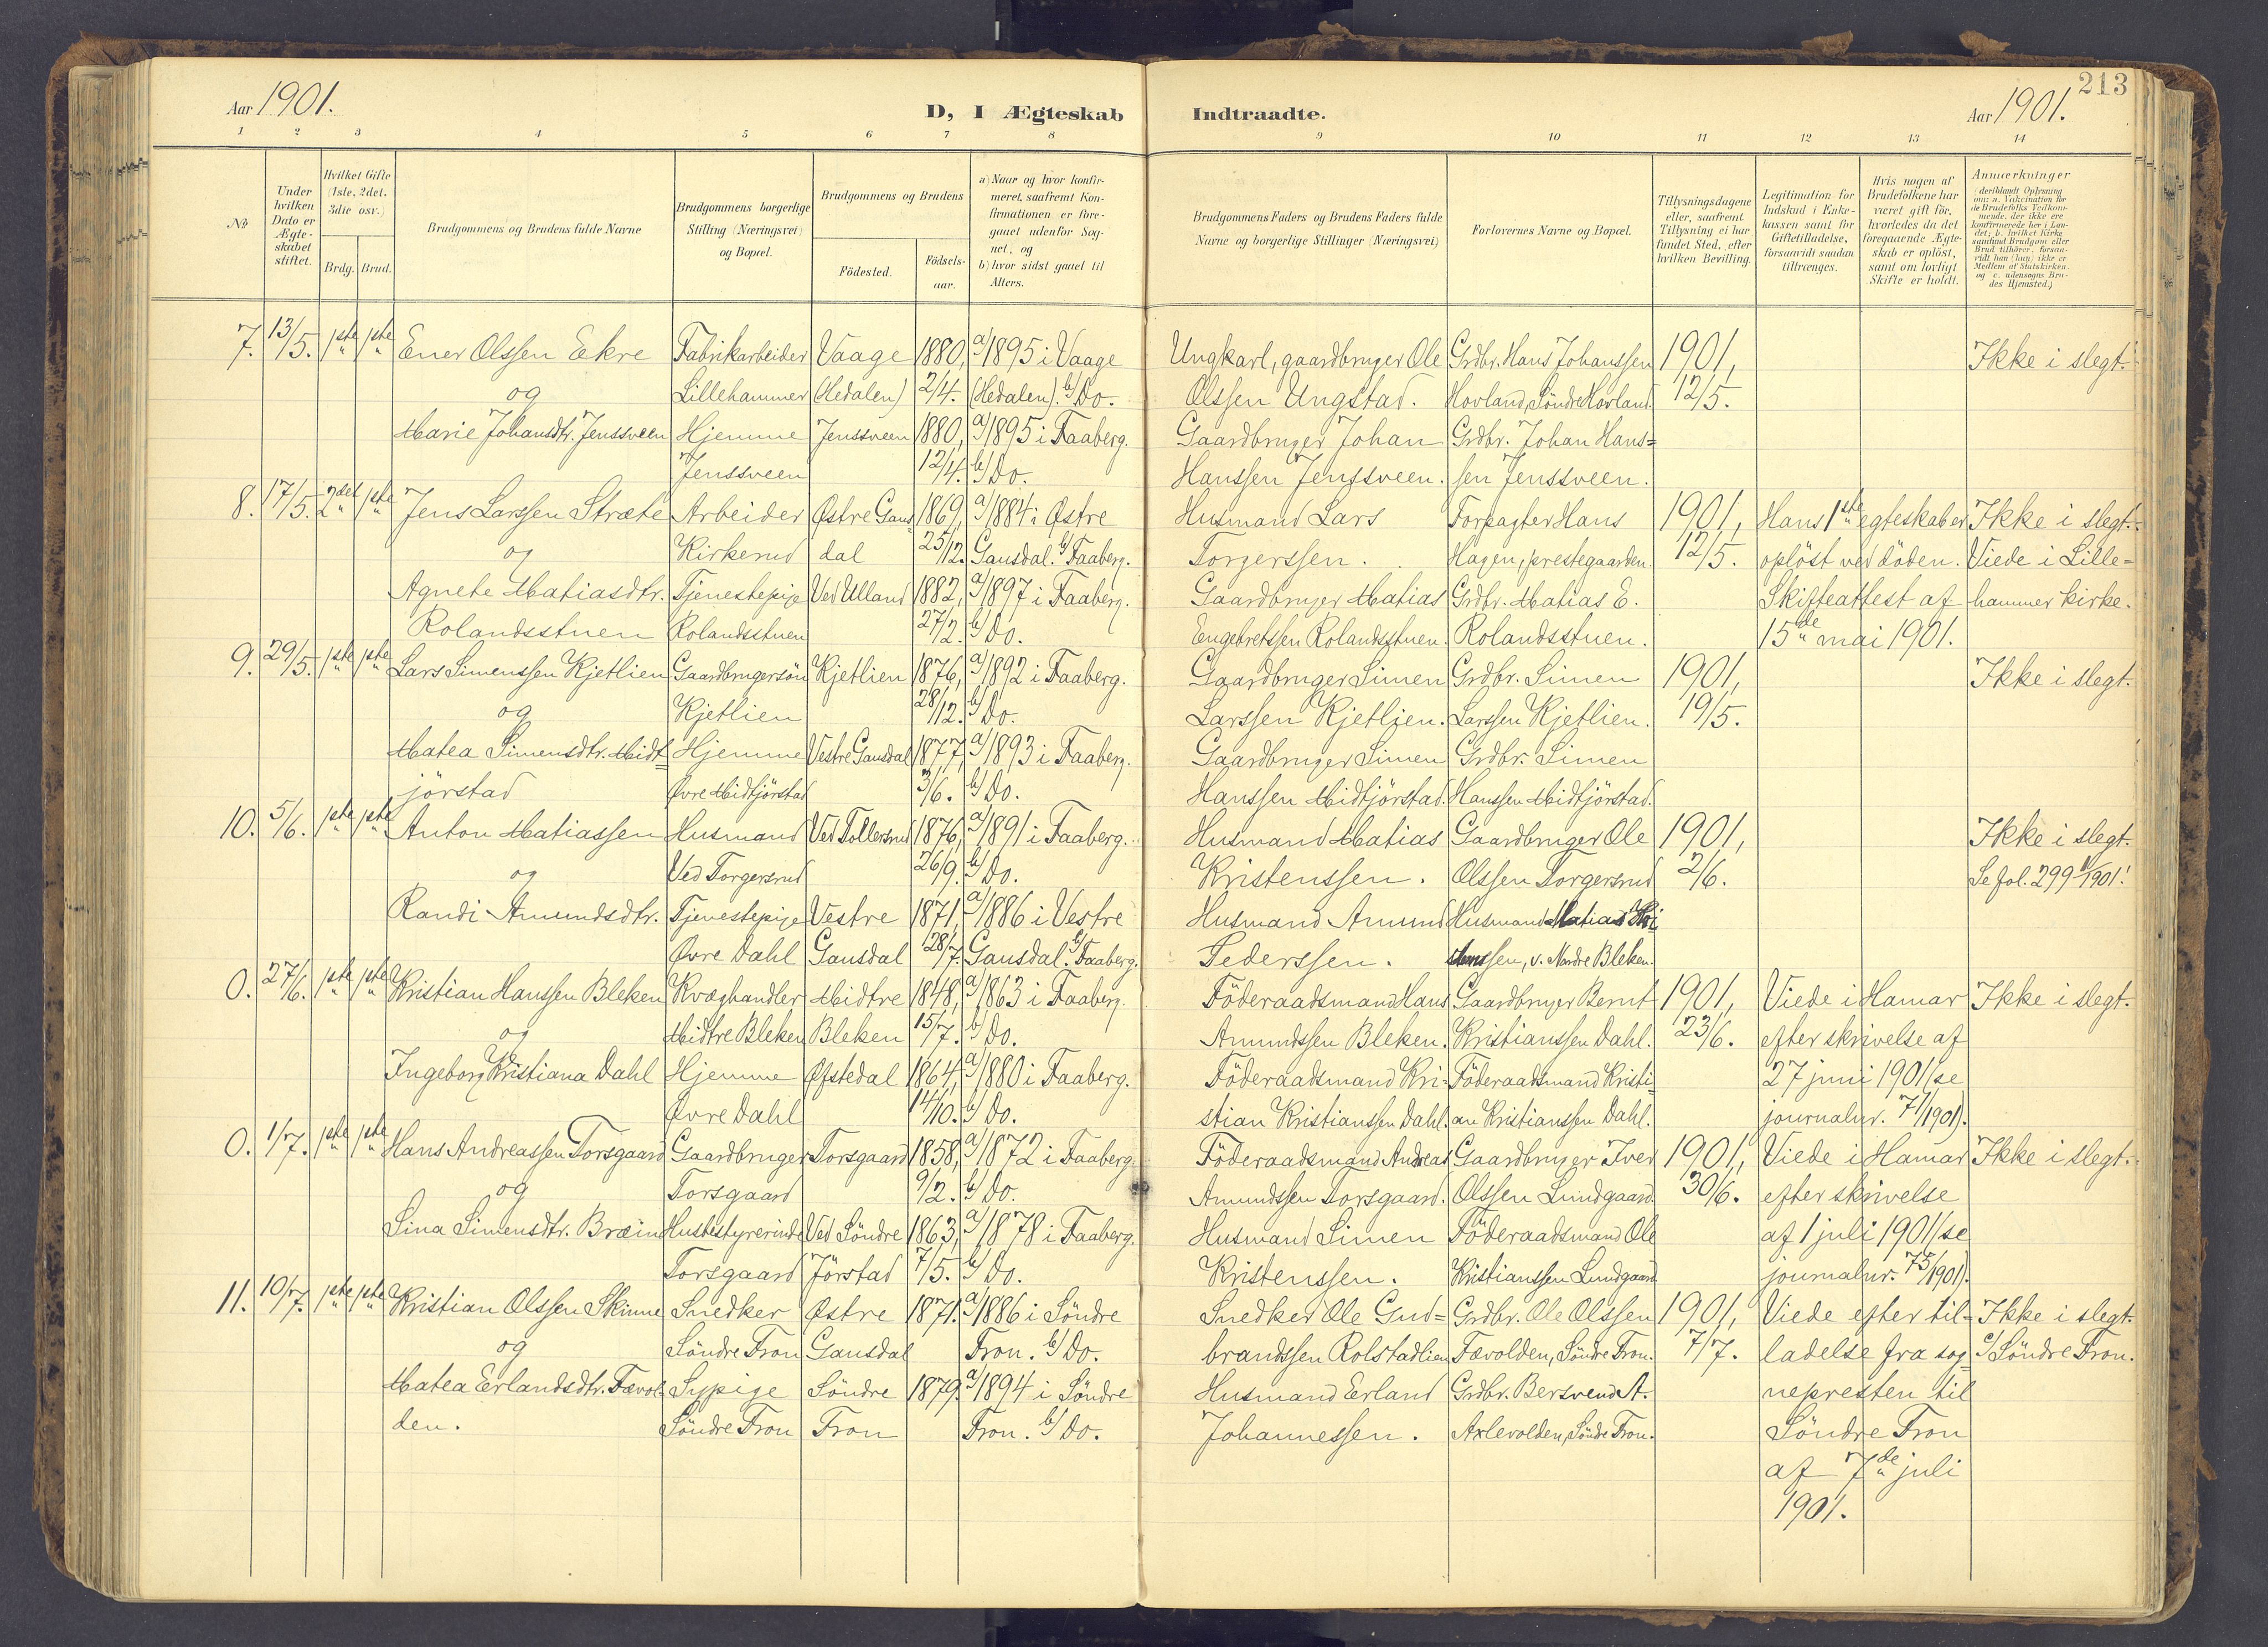 213
Aar 1901. D, I Ægteskab Indtraadte. Aar 1901.
1 2 3 4 5 6 7 8 9 10 11 12 13 14
No
Under hvilken Dato er Ægte-skabet stiftet.
Hvilket Gifte (1ste, 2det, 3die osv.)
Brdg. Brud.
Brudgommens og Brudens fulde Navne
Brudgommens borgerlige Stilling (Næringsvei) og Bopæl.
Brudgommens og Brudens
Födested. Födsels-aar.
a) Naar og hvor konfir-meret, saafremt Kon-firmationen er fore-gaaet udenfor Sog-net, og
b) hvor sidst gaaet til Alters.
Brudgommens Faders og Brudens Faders fulde Navne og borgerlige Stillinger (Næringsvei)
Forlovernes Navne og Bopæl.
Tillysningsdagene eller, saafremt Tillysning ei har fundet Sted, efter hvilken Bevilling.
Legitimation for Indskud i Enke-kassen samt for Giftetilladelse, forsaavidt saadan tiltrænges.
Hvis nogen af Brudefolkene har været gift för, hvorledes da det foregaaende Ægte-skab er oplöst, samt om lovligt Skifte er holdt.
Anmærkninger (deriblandt Oplysning om: a. Vakcination for de Brudefolks Vedkom-mende, der ikke ere konfirmerede her i Lan-det; b. hvilket Kirke-samfund Brudgom eller Brud tilhörer, forsaa-vidt han (hun) ikke er Medlem af Statskirken, og c. udensogns Bru-des Hjemsted.)
7. 13/5. 1ste 1ste Ener Olssen Ekre Fabrikarbeider Vaage 1880, a/1895 i Vaage Ungkarl, gaardbruger Ole Grdbr. Hans Johanssen 1901, Ikke i slegt.
og Lillehammer (Hedalen) 2/4. (Hedalen). b/ Do. Olssen Ungstad. Hovland, Söndre Hovland. 12/5.
Marie Johansdtr. Jenssveen Hjemme Jenssveen 1880, a/1895 i Faaberg. Gaardbruger Johan Grdbr. Johan Hans=
Jenssveen 12/4. b/ Do. Hanssen Jenssveen. sen Jenssveen.
8. 17/5. 2det 1ste Jens Larssen Stræte Arbeider Østre Gaus 1869, a/1884 i Østre Husmand Lars Forpagter Hans 1901, Hans 1ste egteskab er Ikke i slegt.
og Kirkerud dal 25/12. Gausdal. b/ Faaberg. Torgerssen. Hagen, prestegaarden. 12/5. oplöst ved döden. Viede i Lille=
Agnete Matiasdtr. Tjenestepige Ved Ulland 1882, a/1897 i Faaberg. Gaardbruger Matias Grdbr. Matias E. Skifteattest af hammer kirke.
Rolandsstuen Rolandsstuen 27/2. b/ Do. Engebretssen Rolandsstuen. Rolandsstuen. 15de mai 1901.
9. 29/5. 1ste 1ste Lars Simenssen Kjetlien Gaardbrugersön Kjetlien 1876, a/1892 i Faaberg. Gaardbruger Simen Grdbr. Simen 1901, Ikke i slegt.
og Kjetlien 28/12. b/ Do. Larssen Kjetlien. Larssen Kjetlien. 19/5.
Matea Simensdtr. Midt= Hjemme Vestre Gausdal 1877, a/1893 i Faaberg. Gaardbruger Simen Grdbr. Simen
jörstad Øvre Midtjörstad 3/6. b/ Do. Hanssen Midtjörstad. Hanssen Midtjörstad.
10. 5/6. 1ste 1ste Anton Matiassen Husmand Ved Tollersrud 1876, a/1891 i Faaberg. Husmand Matias Gaardbruger Ole 1901, Ikke i slegt.
og Ved Torgersrud 26/9. b/ Do. Kristenssen. Olssen Torgersrud 2/6. Se fol. 299 1/1901!
Randi Amundsdtr. Tjenestepige Vestre 1871, a/1886 i Vestre Husmand Amund Husmand Matias Kri
Øvre Dahl Gausdal 28/7. Gausdal. b/ Faaberg. Pederssen. stenssen, v. Nordre Bleken.
0. 27/6. 1ste 1ste Kristian Hanssen Bleken Kvæghandler Midtre 1848, a/1863 i Faaberg. Föderaadsmand Hans Gaardbruger Bernt 1901, Viede i Hamar Ikke i slegt.
og Midtre Bleken Bleken 15/7. b/ Do. Amundssen Bleken. Kristianssen Dahl. 23/6. efter skrivelse af
Ingeborg Kristiana Dahl Hjemme Øfstedal 1864, a/1880 i Faaberg. Föderaadsmand Kri= Föderaadsmand Kristi= 27 juni 1901 (se
Øvre Dahl 14/10. b/ Do. stian Kristianssen Dahl. an Kristianssen Dahl. journalnr. 71/1901).
0. 1/7. 1ste 1ste Hans Andreassen Torsgaard Gaardbruger Torsgaard 1858, a/1872 i Faaberg. Föderaadsmand Andreas Gaardbruger Iver 1901, Viede i Hamar Ikke i slegt.
og Torsgaard 9/2. b/ Do. Amundssen Torsgaard. Olssen Lundgaard. 30/6. efter skrivelse
Sina Simensdtr. Bræin Husbestyrerinde Ved Söndre 1863, a/1878 i Faaberg. Husmand Simen Föderaadsmand Ole af 1 juli 1901 (se
Torsgaard Jörstad 7/5. b/ Do. Kristenssen. Kristianssen Lundgaard journalnr. 75/1901).
11. 10/7. 1ste 1ste Kristian Olssen Skinne Snedker Østre 1871. a/1886 i Söndre Snedker Ole Gud= Grdbr. Ole Olssen 1901, Viede efter til= Ikke i slegt.
og Söndre Fron Gausdal Fron. b/ Do. brandssen Rolstadlien Fævolden, Söndre Fron. 7/7. ladelse fra sog= c/ Söndre Fron.
Matea Erlandsdtr. Fævol= Sypige Söndre 1879. a/1894 i Söndre Husmand Erland Grdbr. Bersvend A. nepresten til
den. Söndre Fron Fron Fron. b/ Do. Johannessen. Axlevolden, Söndre Fron. Söndre Fron
af 7de juli
1901.